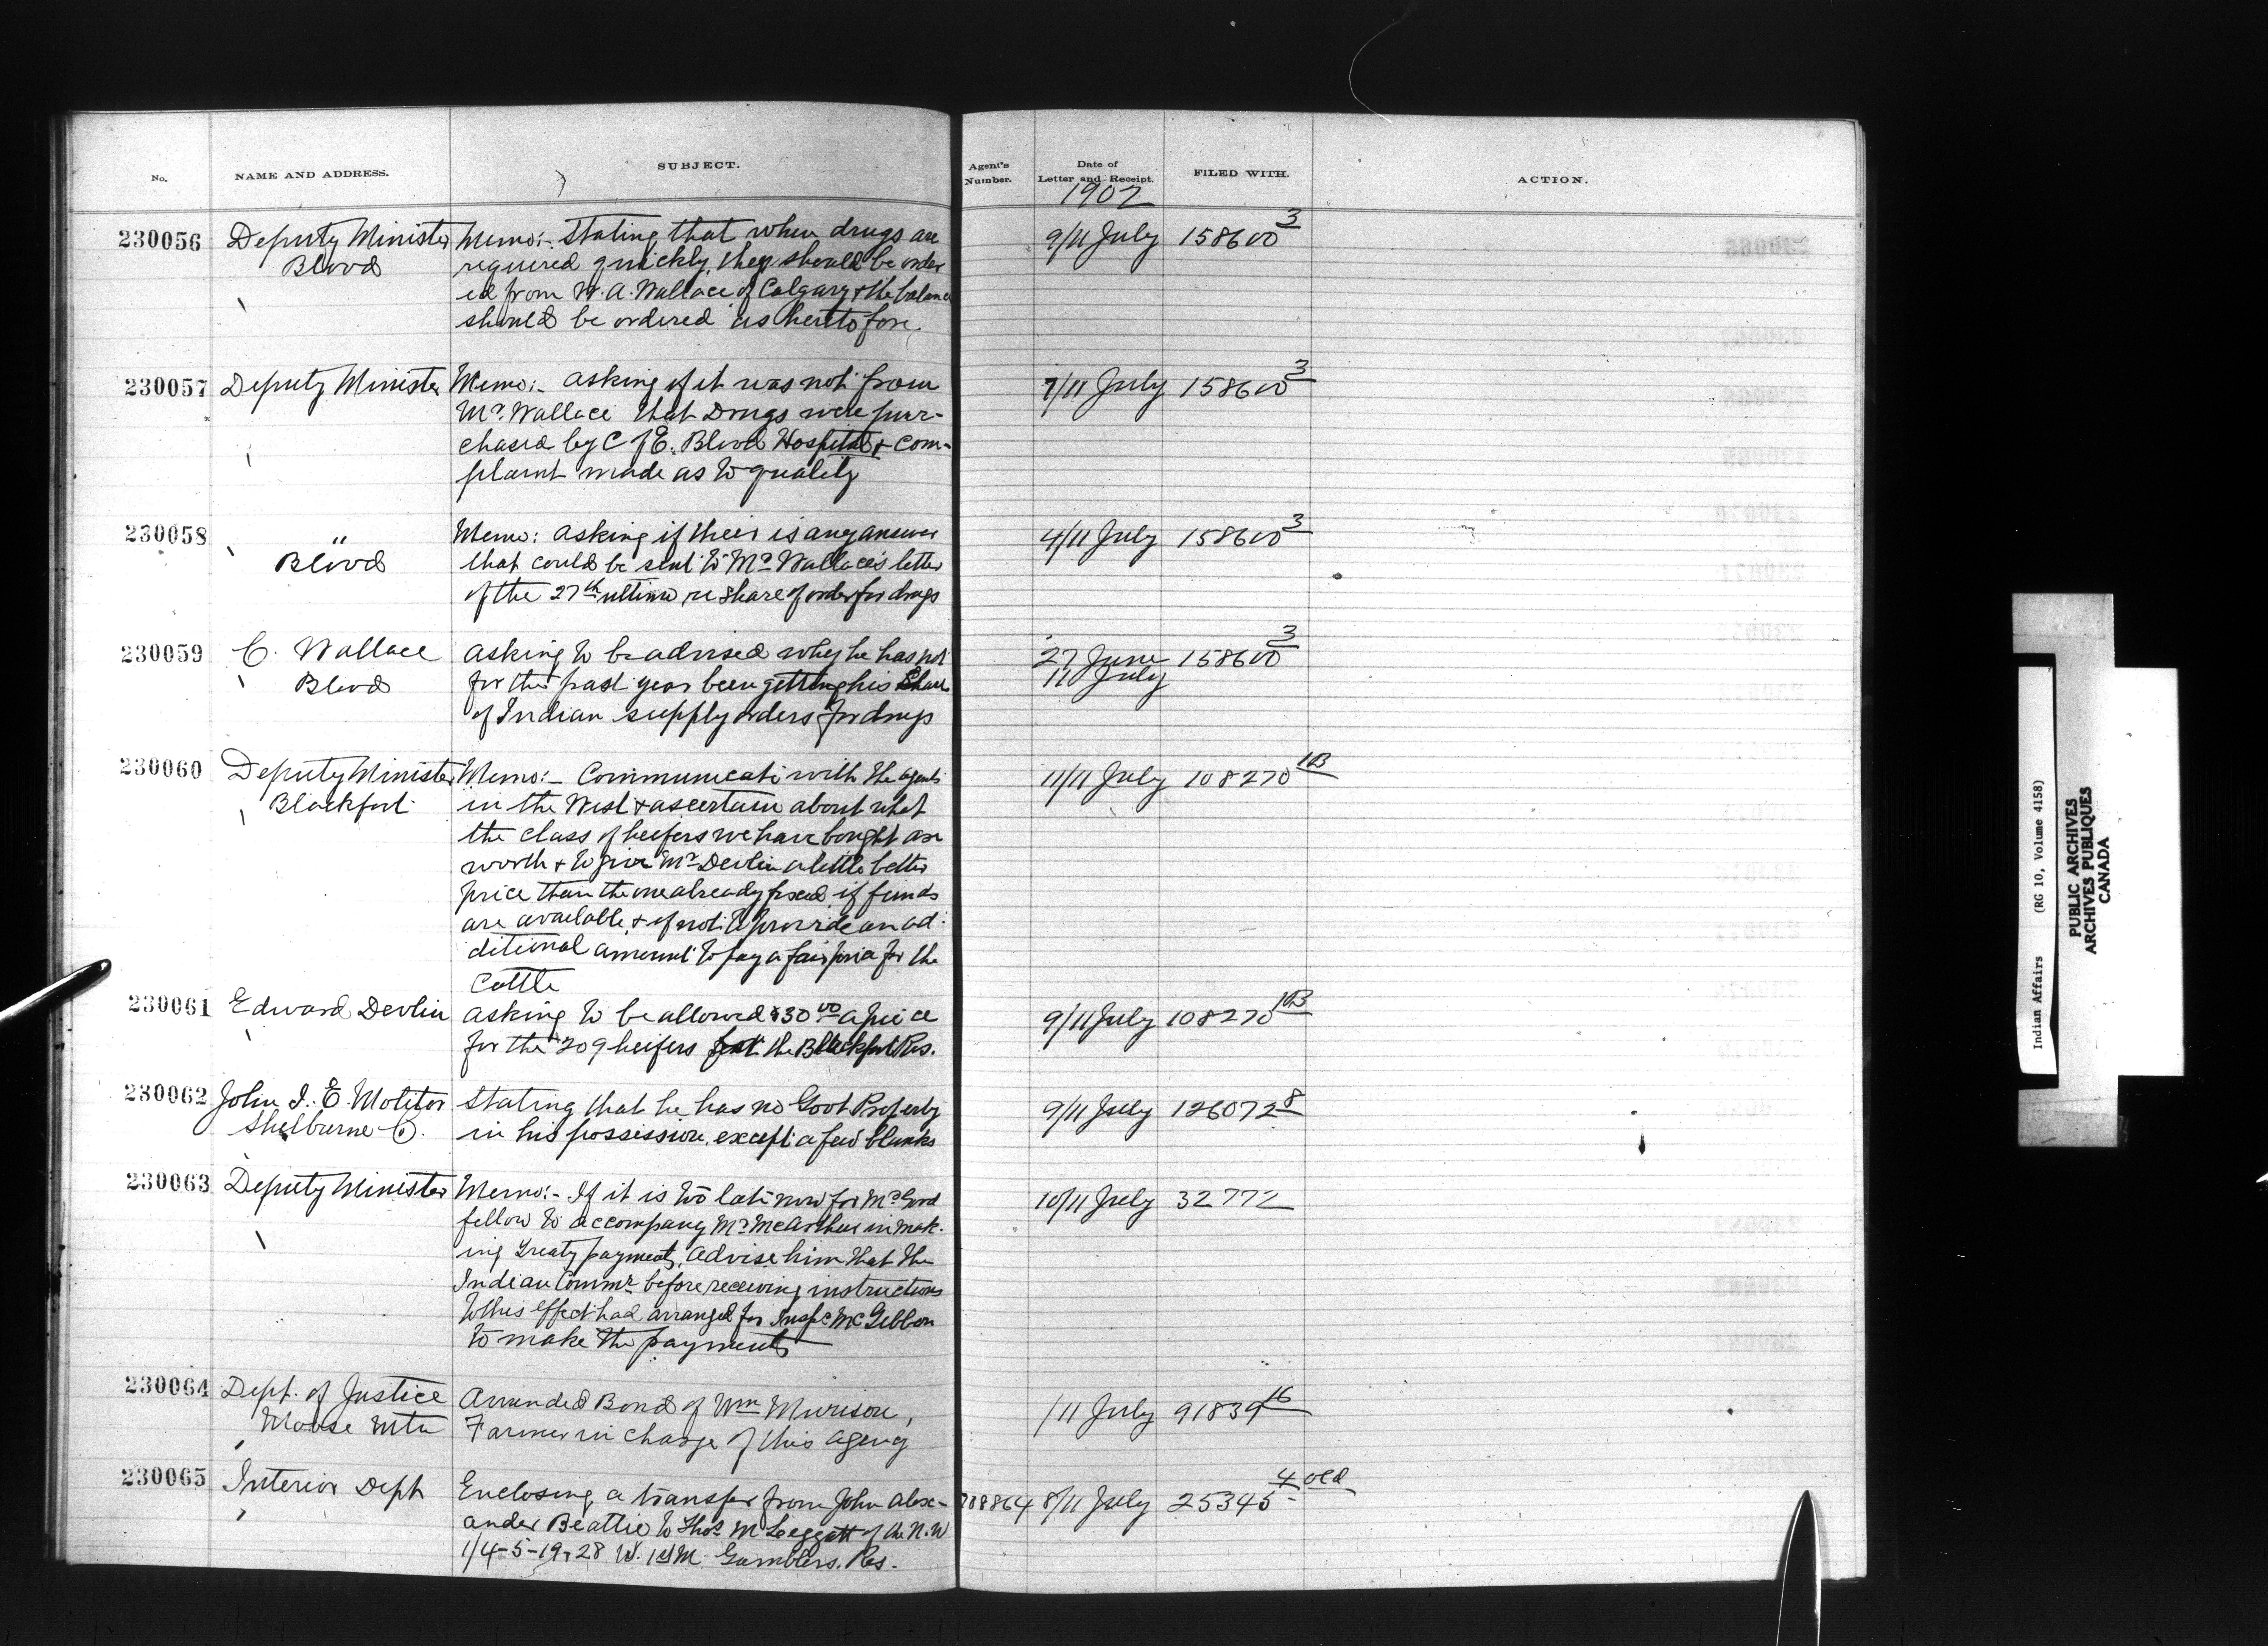 No.
NAME AND ADDRESS.
SUBJECT.
Agent's Number.
Date of Letter and Receipt.
FILED WITH.
ACTION.
1902
230056
Deputy Minister
Blood
Memo:- Stating that when drugs are
required quickly, they should be order
ed from W. A. Wallace of Calgary & the balance
should be ordered as heretofore.
9/11 July
158600 3
230057
Deputy Minister
Memo:- asking if it was not from
Mr. Wallace that Drugs were pur-
chased by C of E. Blood Hospital & com-
plaint made as to quality
7/11 July
158600 3
230058
"
Blood
Memo: asking if there is any answer
that could be sent to Mr Wallace's letter
of the 27th ultimo re share of order for drugs
4/11 July
158600 3
230059
C. Wallace
Blood
asking to be advised why he has not
for the past year been getting his Share
of Indian supply orders for drugs
27 June
11 July
158600 3
230060
Deputy Minister
Blackfoot
Memo:- Communicate with the agents
in the West & ascertain about what
the class of heifers we have bought are
worth & to give Mr Devlin a little better
price than the one already fixed if funds
are available, & if not to provide an ad-
ditional amount to pay a fair price for the
Cattle
11/11 July
108270 103
230061
Edward Devlin
asking to be allowed $30 00 apiece
for the 209 heifers for the Blackfoot Res.
9/11 July
108270 103
230062
John I. E. Molitor
Shelburne O.
Stating that he has no Govt Property
in his possession except a few blanks
9/11 July
126072 8
230063
Deputy Minister
Memo:- If it is too late now for Mr Good
fellow to accompany Mr McArthur in mak-
ing Treaty payments, advise him that the
Indian Commr before receiving instructions
to this effect had arranged for Inspr McGibbon
to make the payments
10/11 July
32772
230064
Dept. of Justice
Moose Mtn
Amended Bond of Wm Murison,
Farmer in charge of this agency
/11 July
91839 16
230065
Interior Dept
Enclosing a transfer from John Alex-
ander Beattie to Thos M Leggatt of the N.W
1/4-5-19-28 W. 1st M Gamblers. Res.
708864
8/11 July
25345 4 old
Indian Affairs (RG 10, Volume 4158)
PUBLIC ARCHIVES
ARCHIVES PUBLIQUES
CANADA